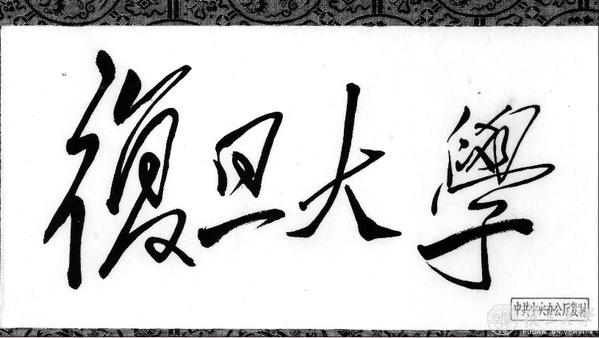 復旦大學
中共中央办公厅复制
復旦大學
FUDAN UNIVERSITY